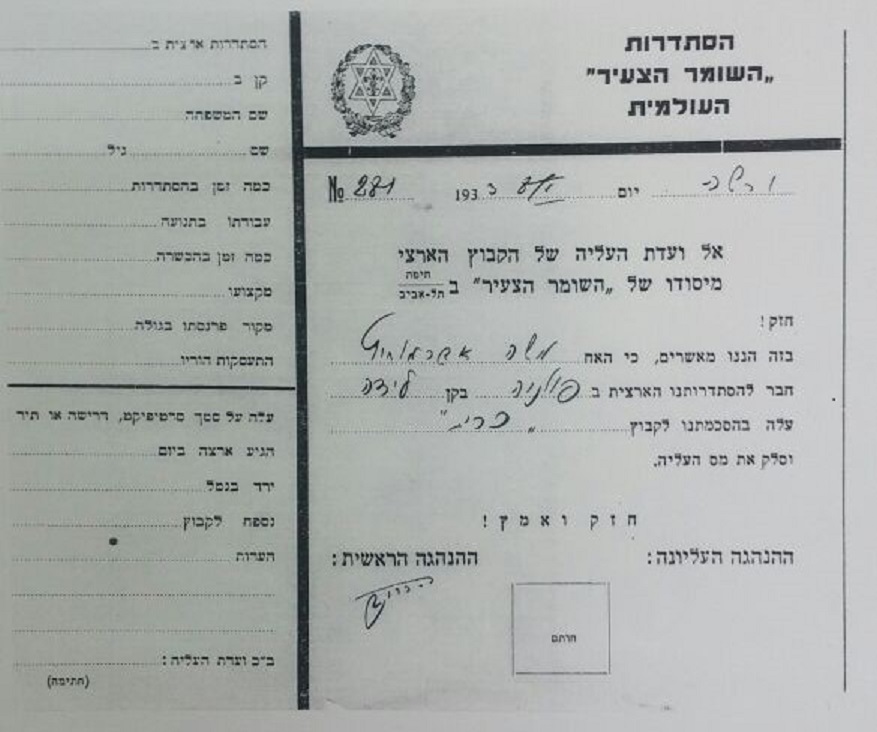 הסתדרות
„השומר הצעיר"
העולמית
ורשה יום 1933 № 281
אל ועדת העליה של הקבוץ הארצי
מיסודו של „השומר הצעיר" ב חיפה
תל-אביב
חזק!
בזה הננו מאשרים, כי האח משה אברמוביץ
חבר להסתדרותנו הארצית ב פולניה בקן לידה
עלה בהסכמתנו לקבוץ
וסלק את מס העליה.
חזק ואמץ!
ההנהגה העליונה: ההנהגה הראשית:
חותם
הסתדרות ארצית ב
קן ב
שם המשפחה
שם גיל
כמה זמן בהסתדרות
עבודתו בתנועה
כמה זמן בהכשרה
מקצועו
מקור פרנסתו בגולה
התעסקות הוריו
עלה על סמך סרטיפיקט, דרישה או תיר
הגיע ארצה ביום
ירד בנמל
נספח לקבוץ
הערות
ב"כ ועדת העליה:
(חתימה)